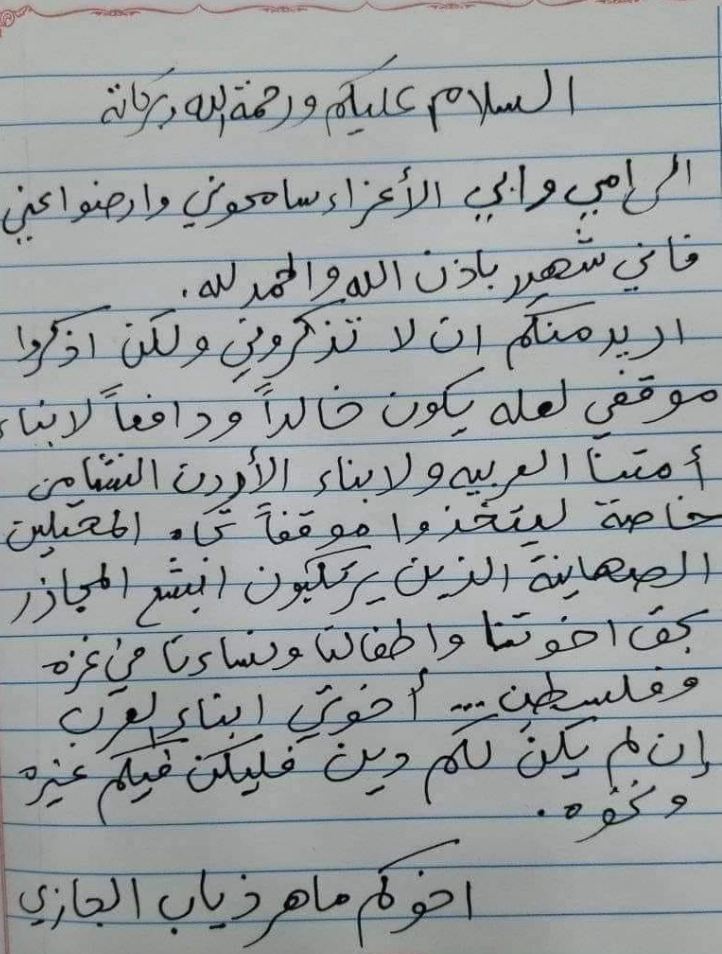 السلام عليكم ورحمة الله وبركاتة
الى امي وابي الأعزاء سامحوني وارضوا عني
فاني شهيد باذن الله والحمد لله.
اريد منكم ان لا تذكروني ولكن اذكروا
موقفي لعله يكون خالداً ودافعاً لابناء
أمتنا العربيه ولابناء الأردن النشامى
خاصة ليتخذوا موقفاً تجاه المحتلين
الصهاينة الذين يرتكبون ابشع المجازر
بحق اخوتنا واطفالنا ونساءنا في غزه
وفلسطين ... أخوتي ابناء العرب
إن لم يكن لكم دين فليكن فيكم غيره
ونخوه.
اخوكم ماهر ذياب الجازي